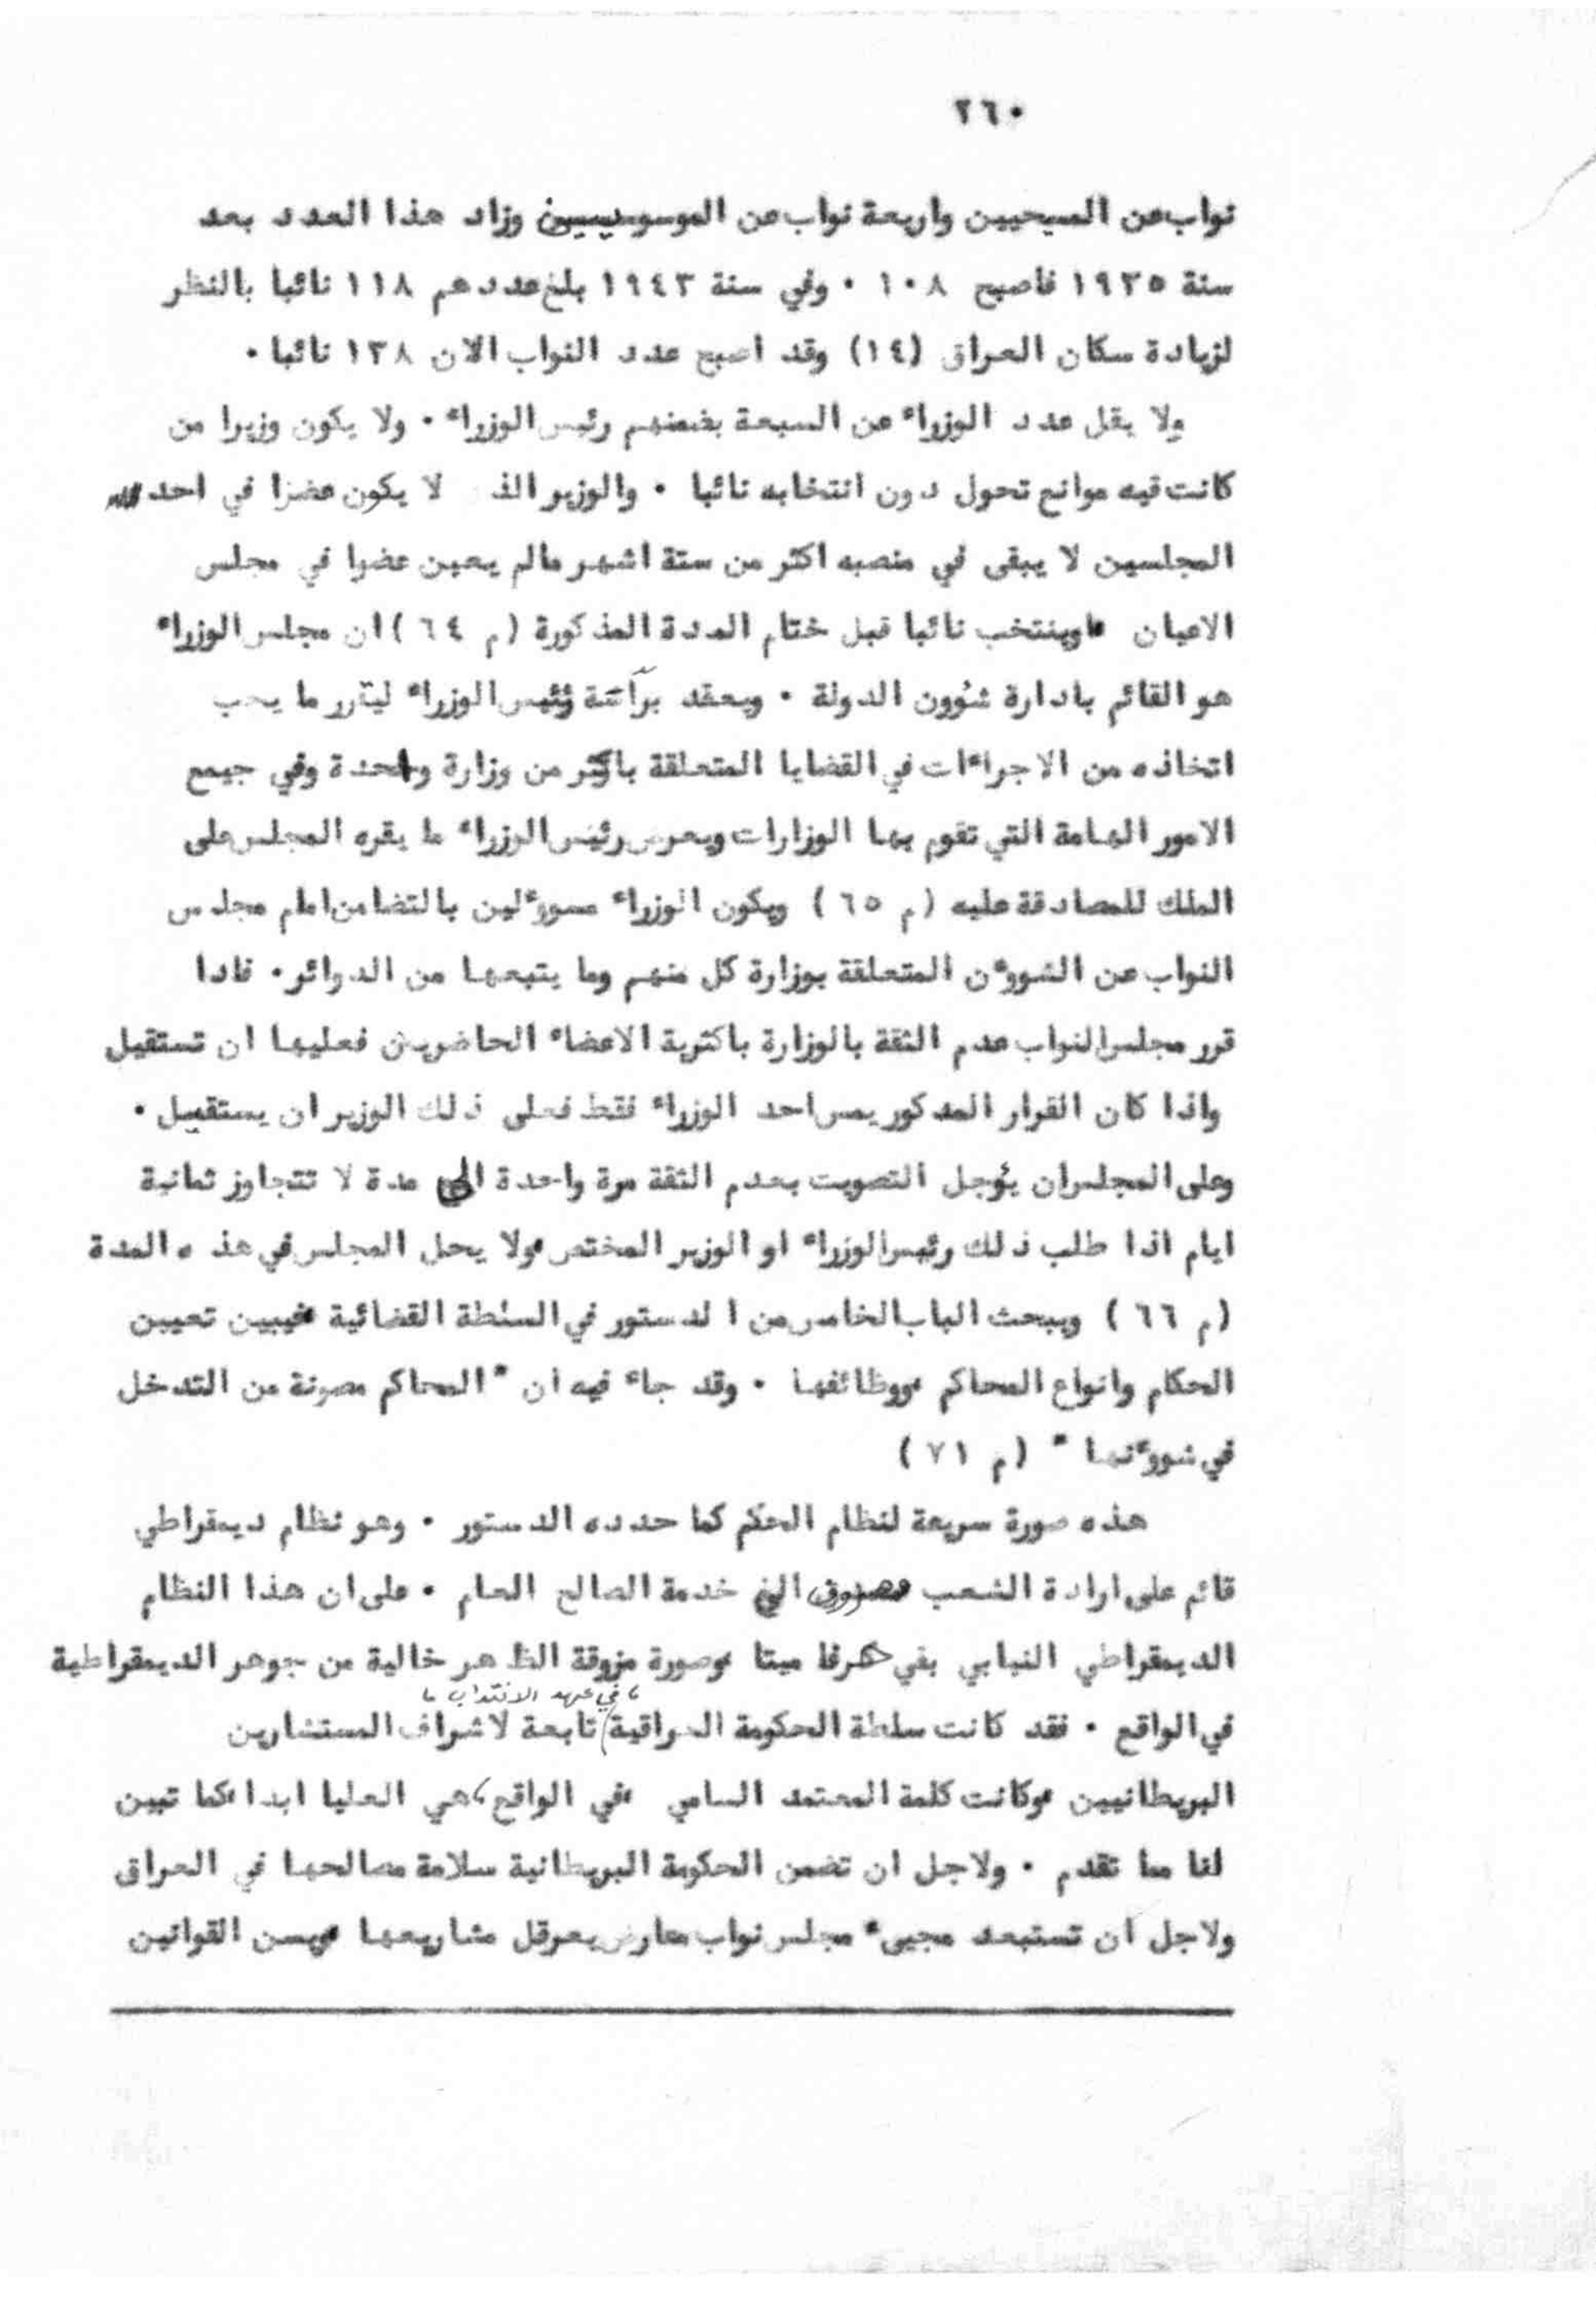 ٢٦٠
نواب عن المسيحيين واربعة نواب عن الموسويين وزاد هذا العدد بعد
سنة ١٩٣٥ فاصبح ١٠٨ ٠ وفي سنة ١٩٤٣ بلغ عددهم ١١٨ نائبا بالنظر
لزيادة سكان العراق (١٤) وقد اصبح عدد النواب الان ١٣٨ نائبا ٠
ولا يقل عدد الوزراء عن السبعة بضمنهم رئيس الوزراء ٠ ولا يكون وزيرا من
كانت فيه موانع تحول دون انتخابه نائبا ٠ والوزير الذ لا يكون عضوا في احد
المجلسين لا يبقى في منصبه اكثر من ستة اشهر مالم يعين عضوا في مجلس
الاعيان اوينتخب نائبا قبل ختام المدة المذكورة (م ٦٤) ان مجلس الوزراء
هو القائم بادارة شؤون الدولة ٠ ويعقد برآسة رئيس الوزراء ليقرر ما يجب
اتخاذه من الاجراءات في القضايا المتعلقة باكثر من وزارة واحدة وفي جميع
الامور الهامة التي تقوم بها الوزارات ويعرض رئيس الوزراء ما يقره المجلس على
الملك للمصادقة عليه (م ٦٥) ويكون الوزراء مسوءلين بالتضامن امام مجلس
النواب عن الشووءن المتعلقة بوزارة كل منهم وما يتبعها من الدوائر ٠ فاذا
قرر مجلس النواب عدم الثقة بالوزارة باكثرية الاعضاء الحاضرين فعليها ان تستقيل
واذا كان القرار المذكور يمس احد الوزراء فقط فعلى ذلك الوزير ان يستقيل ٠
وعلى المجلس ان يؤجل التصويت بعدم الثقة مرة واحدة الى مدة لا تتجاوز ثمانية
ايام اذا طلب ذلك رئيس الوزراء او الوزير المختص ،ولا يحل المجلس في هذه المدة
(م ٦٦) ويبحث الباب الخامس من الدستور في السلطة القضائية ،فيبين تعيين
الحكام وانواع المحاكم ،ووظائفها ٠ وقد جاء فيه ان " المحاكم مصونة من التدخل
في شووءنها " (م ٧١)
هذه صورة سريعة لنظام الحكم كما حدده الدستور ٠ وهو نظام ديمقراطي
قائم على ارادة الشعب مصروف الى خدمة الصالح العام ٠ على ان هذا النظام
الديمقراطي النيابي بقي حرفا ميتا ،وصورة مزوقة الظاهر خالية من جوهر الديمقراطية
في الواقع ٠ فقد كانت سلطة الحكومة العراقية ، في عهد الانتداب ، تابعة لاشراف المستشارين
البريطانيين ،وكانت كلمة المعتمد السامي ،في الواقع ، هي العليا ابدا ،كما تبين
لنا مما تقدم ٠ ولاجل ان تضمن الحكومة البريطانية سلامة مصالحها في العراق
ولاجل ان تستبعد مجيىء مجلس نواب معارض يعرقل مشاريعها ،ويسن القوانين